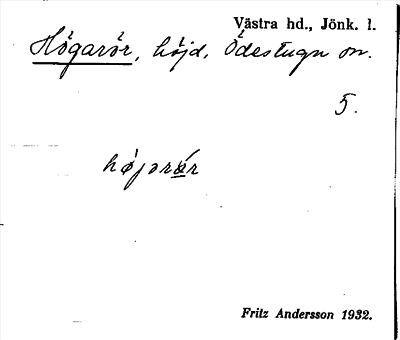 Västra hd., Jönk. l.
Högarör, höjd, Ödestugu sn.
5.
Fritz Andersson 1932.